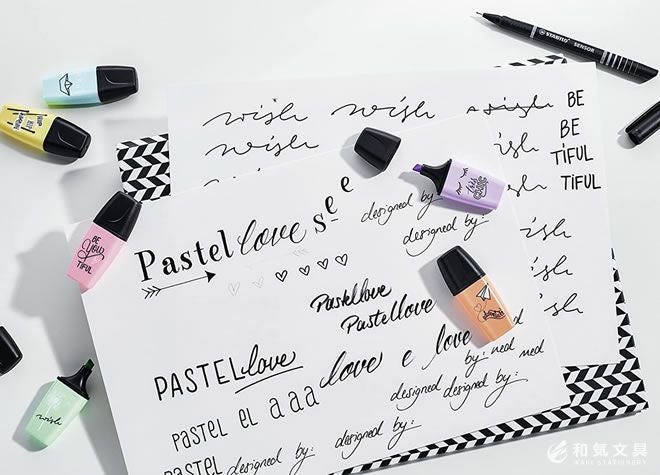 STABILO SENSOR
wish wish wish BE
wish wish BE
TIFUL
TIFUL
wish
wish
wish
BE
YOU
TIFUL
designed by:
designed by:
Pastel love see
Pastellove
Pastellove
PASTEL love love e love
by: ned
med
designed designed by:
pastel el aaa
PASTEL designed by: designed by:
wish
和気文具
WAKI STATIONERY